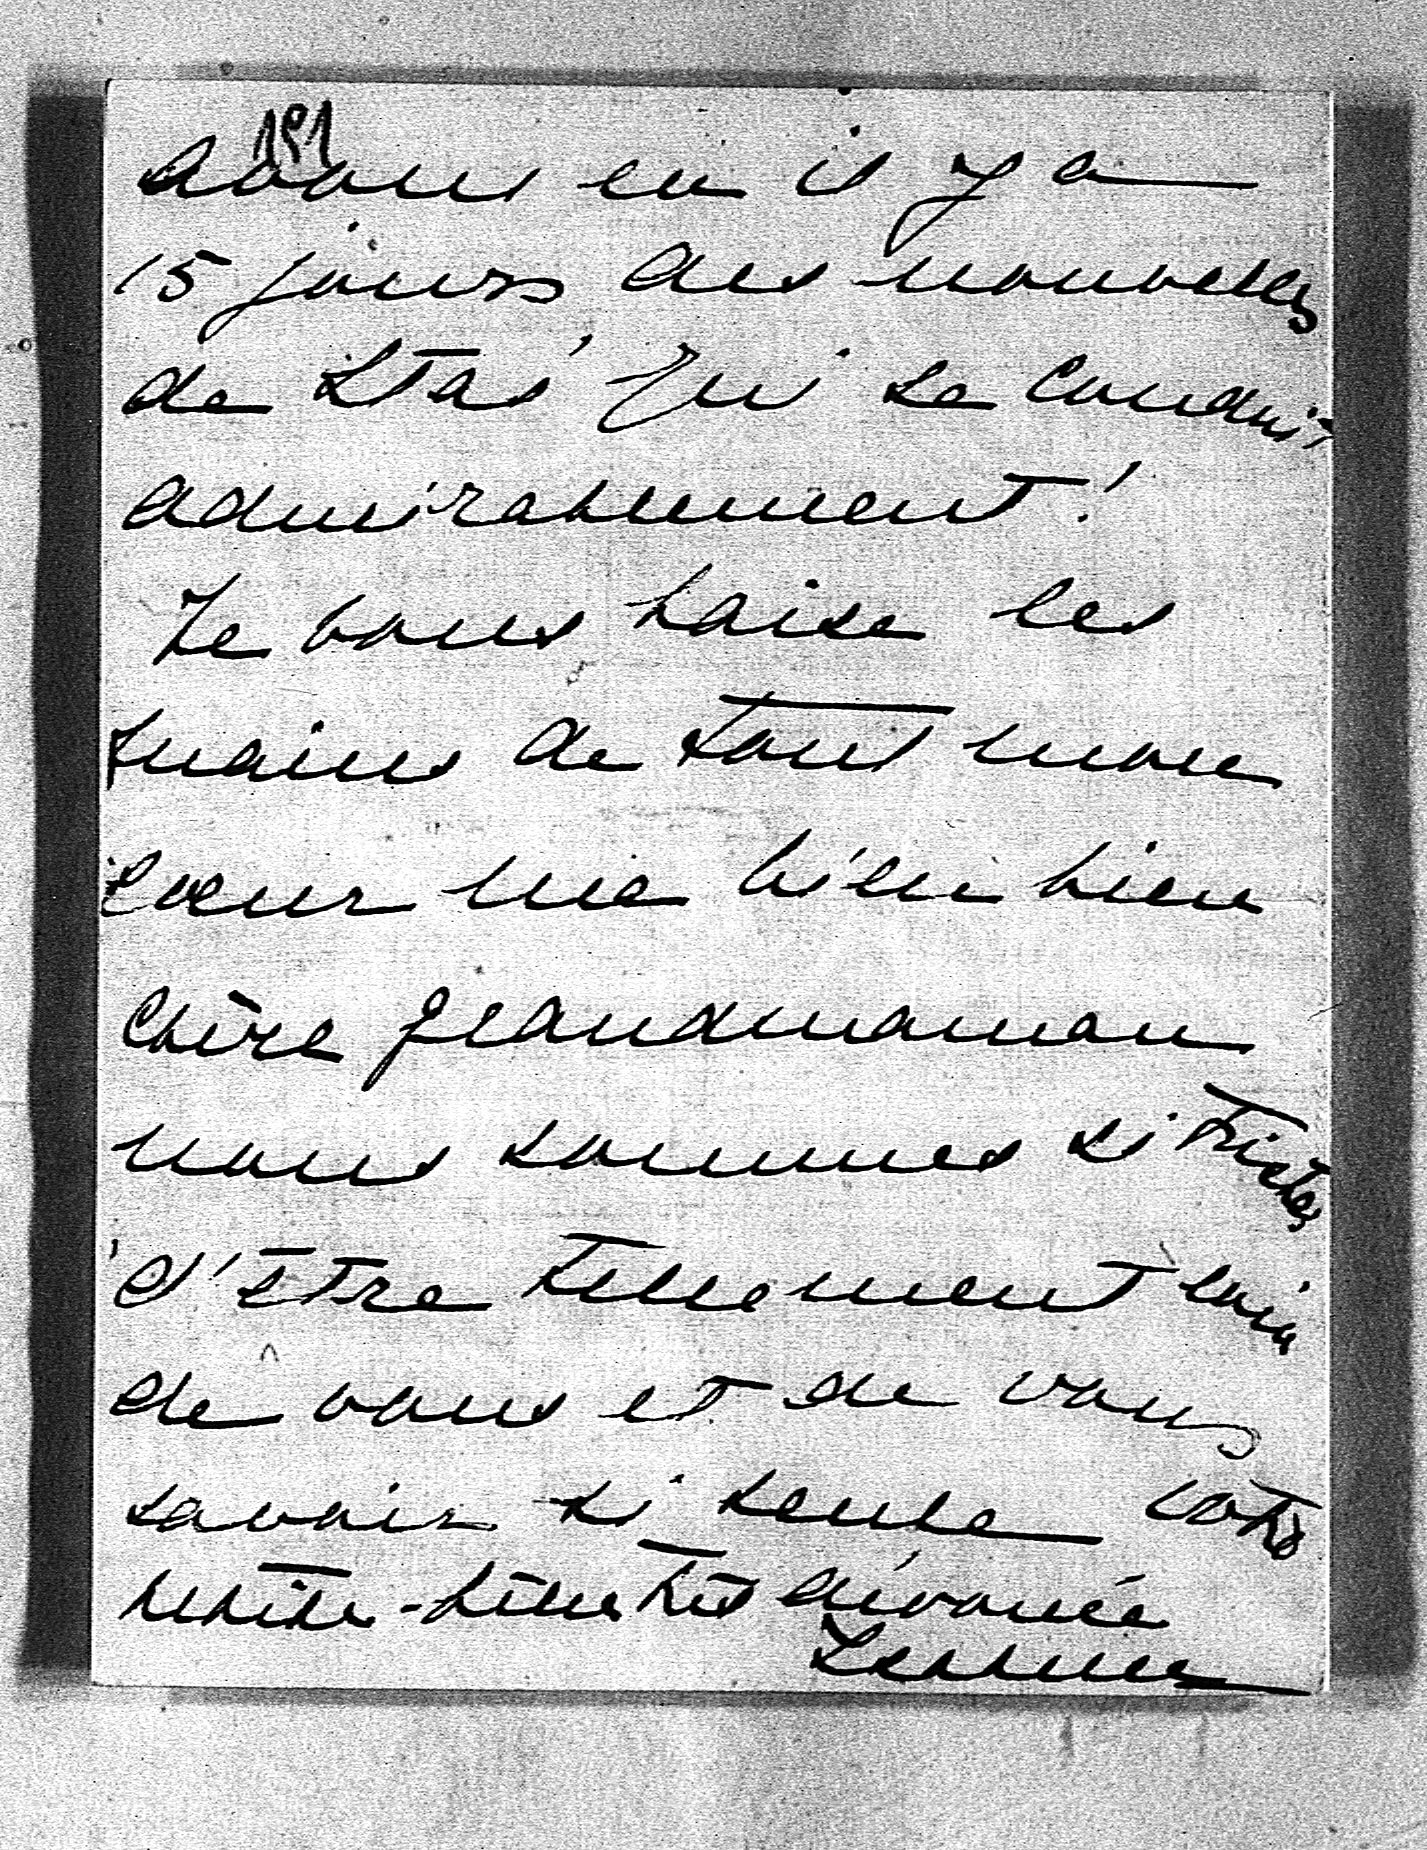 191
avons eu il y a
15 jours des nouvelles
de Stas' qui se conduit
admirablement!
Je vous baise les
mains de tout mon
cœur ma bien bien
chère grandmaman
nous sommes si tristes
d'être tellement loin
de vous et de vous
savoir si seule votre
petite-fille très dévouée